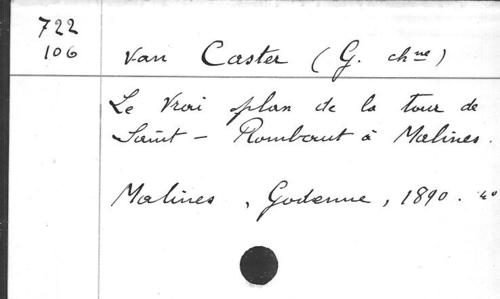 722
106
van Caster (G. chne)
Le Vrai plan de la tour de
Saint - Rombaut à Malines.
Malines, Godenne, 1890. 4o